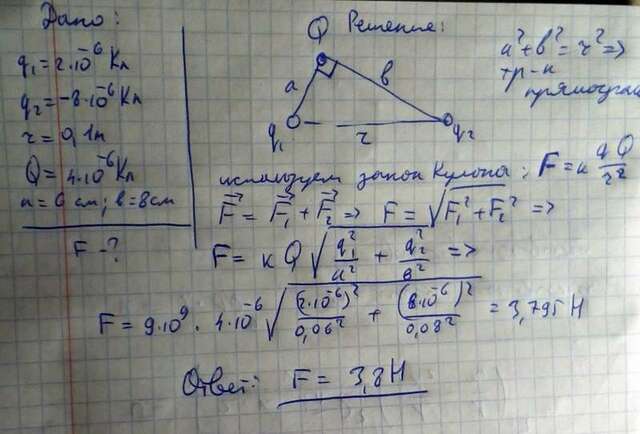 Дано:
q₁ = 2·10⁻⁶ Кл
q₂ = -8·10⁻⁶ Кл
r = 0,1 м
Q = 4·10⁻⁶ Кл
a = 6 см; b = 8 см
F - ?
Решение:
Q
a
b
q₁
r
q₂
a² + b² = r² =>
тр-к
прямоугол
используем закон Кулона: F = k qQ/r²
F⃗ = F⃗₁ + F⃗₂ => F = √(F₁² + F₂²) =>
F = k Q √(q₁²/a² + q₂²/b²) =>
F = 9·10⁹ · 4·10⁻⁶ √((2·10⁻⁶)²/0,06² + (8·10⁻⁶)²/0,08²) = 3,795 Н
Ответ: F = 3,8 Н